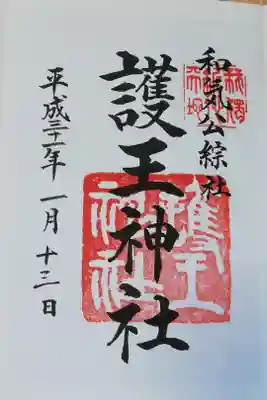 和気公綜社
護王神社
平成三十一年一月十三日
護王
神社